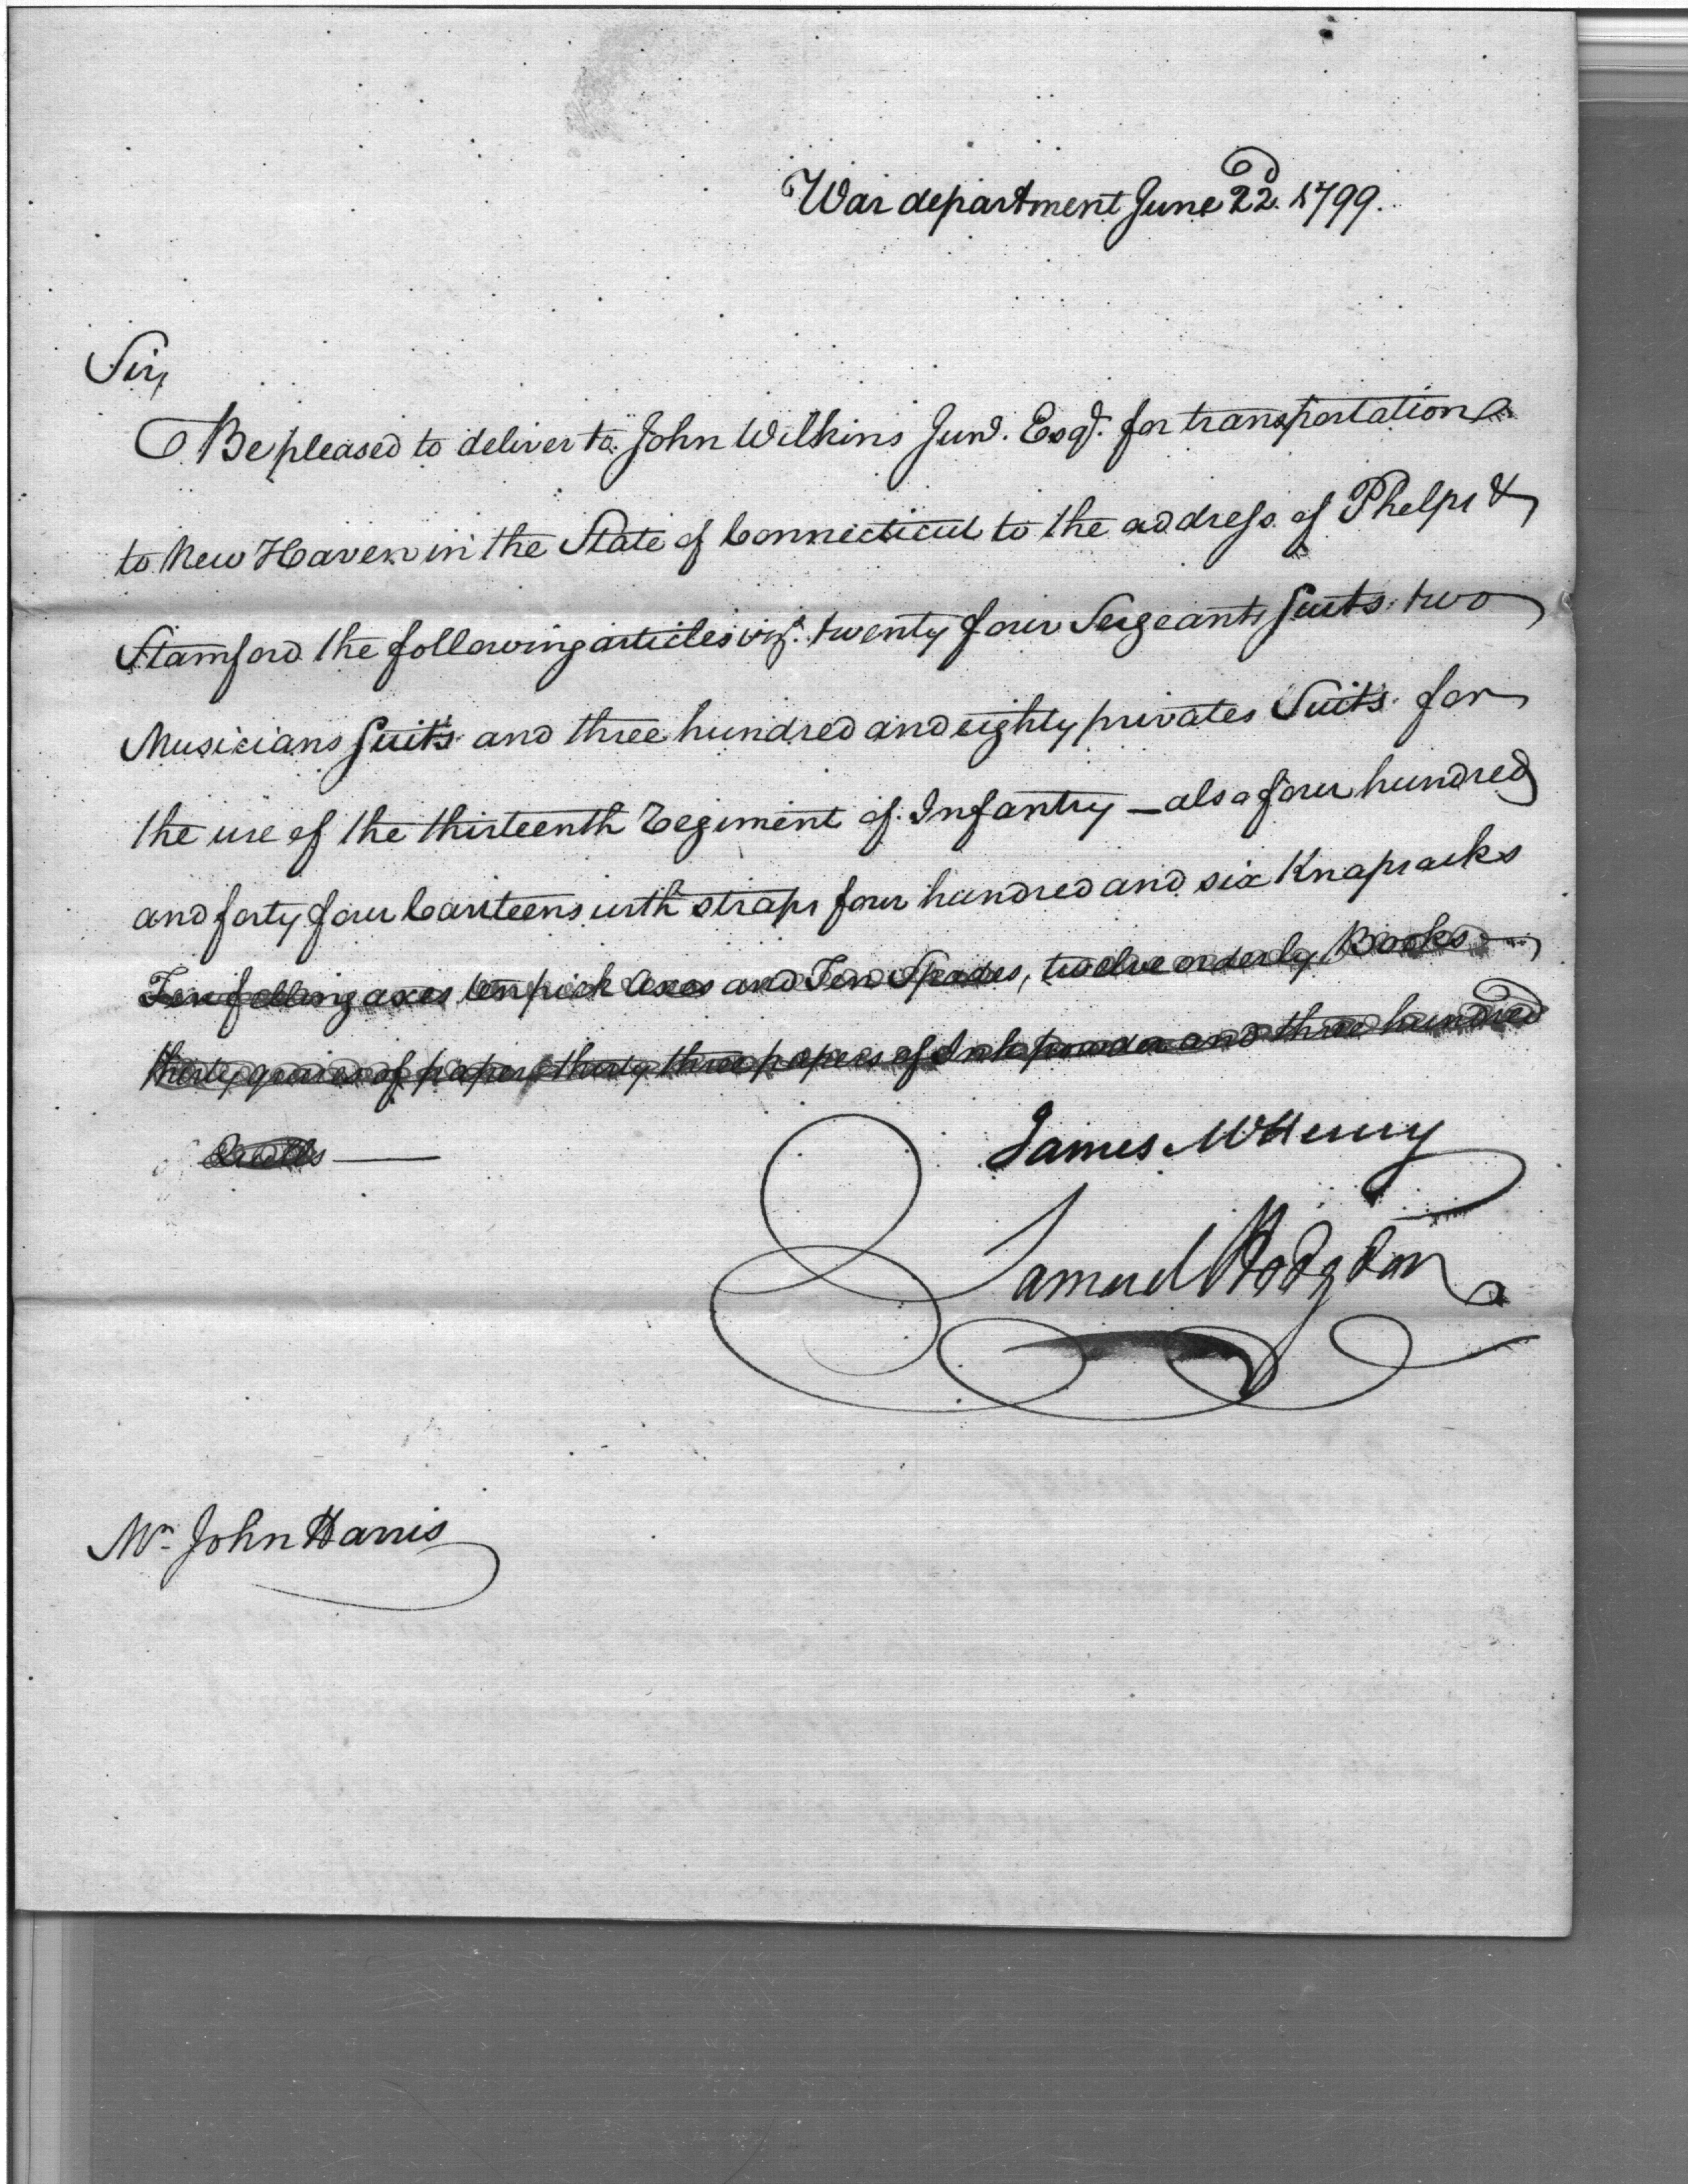 War department June 22d. 1799.
Sir,
Be pleased to deliver to John Wilkins Junr. Esqr. for transportation
to New Haven in the State of Connecticut to the address of Phelps &
Stamford the following articles vizt. twenty four Sergeants Suits two
Musicians Suits and three hundred and eighty privates Suits for
the use of the thirteenth Regiment of Infantry – also four hundred
and forty four Canteens with straps four hundred and six Knapsacks
Ten felling axes ten pick axes and Ten Spades, twelve orderly Books
thirty quires of paper, thirty three papers of Inkpowder and three hundred
Quills
James McHenry
Samuel Hodgdon
Mr. John Harris